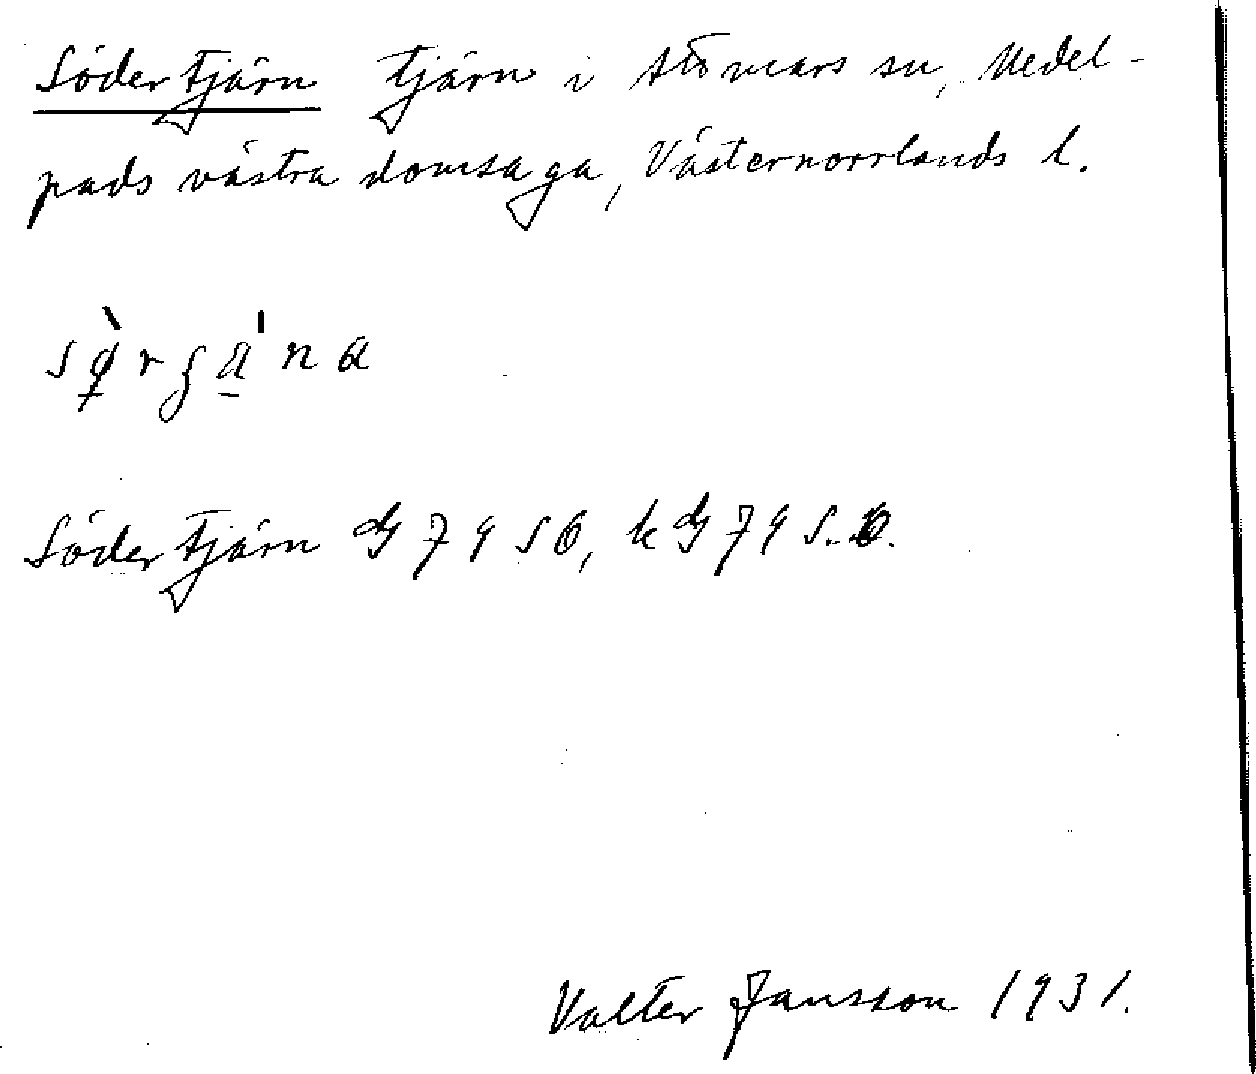 Södertjärn tjärn i Attmars sn, Medel-
pads västra domsaga, Västernorrlands l.
Södertjärn G 79 SO, k G 79 S.O.
Valter Jansson 1931.